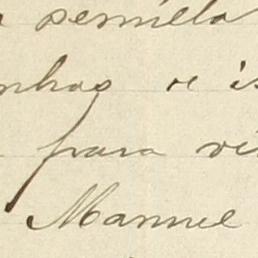 semilla
nhas e is
para vi
Manuel